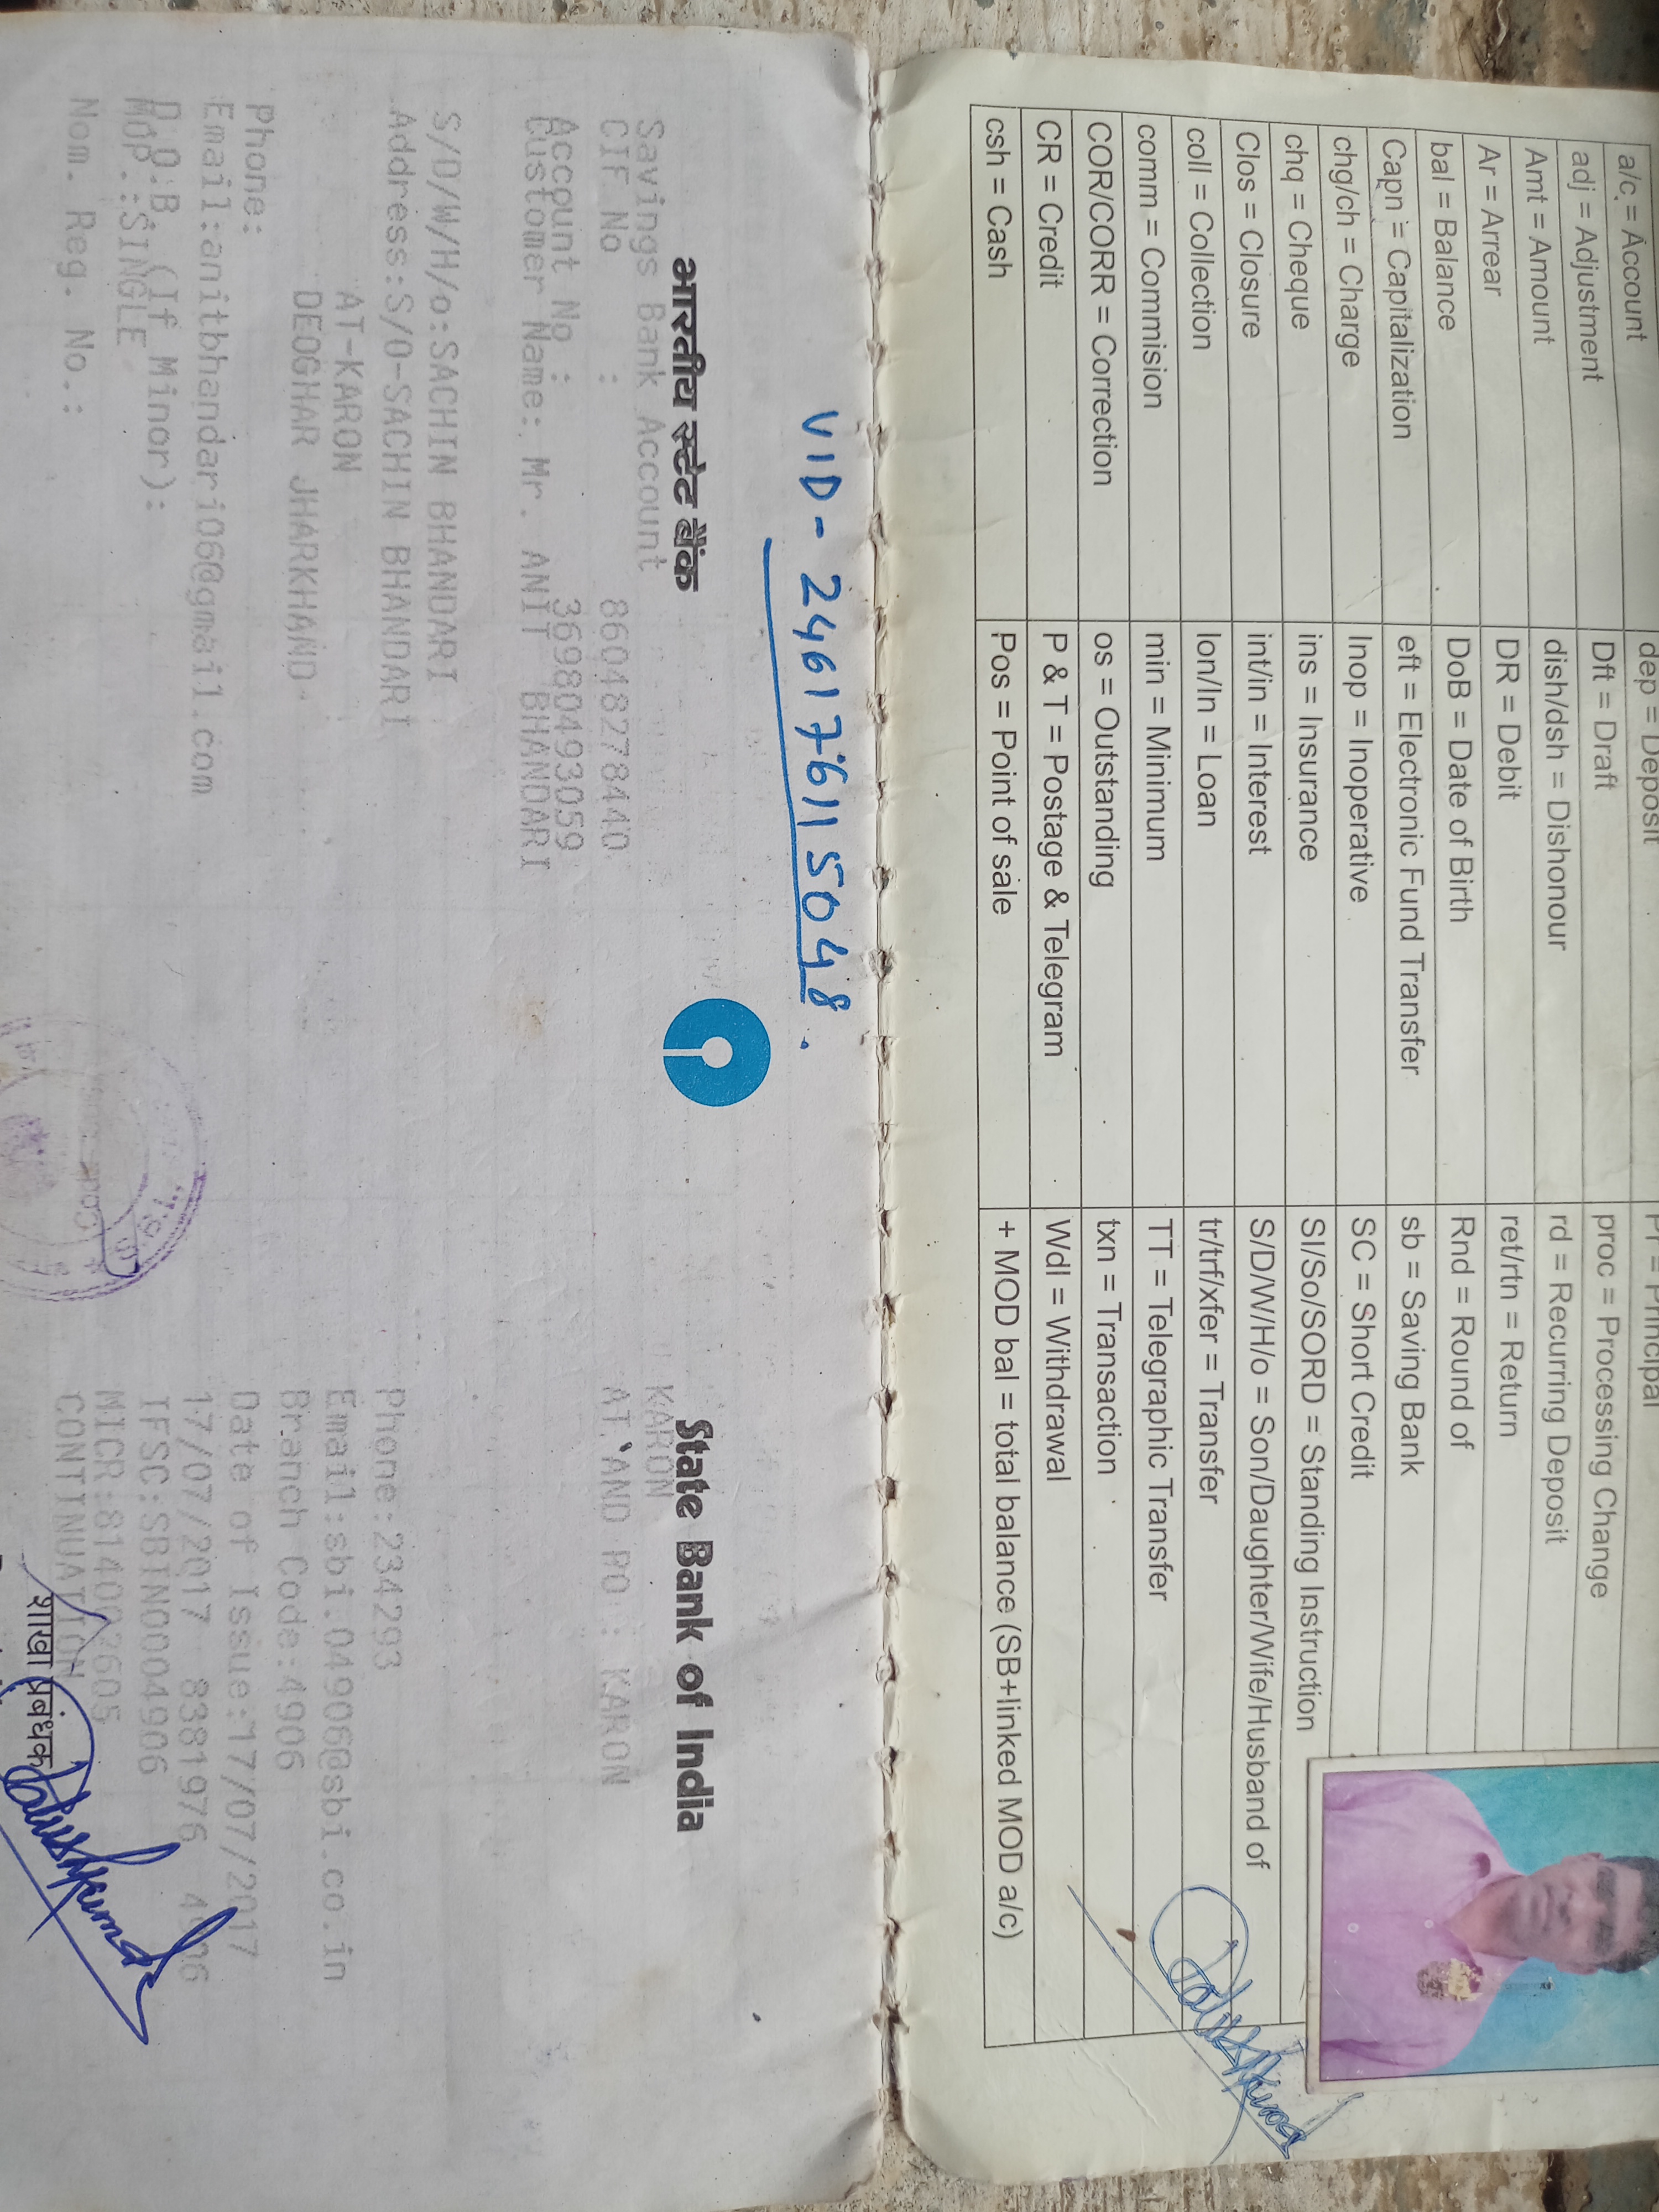 a/c = Account
adj = Adjustment
Amt = Amount
Ar = Arrear
bal = Balance
Capn = Capitalization
chg/ch = Charge
chq = Cheque
Clos = Closure
coll = Collection
comm = Commision
COR/CORR = Correction
CR = Credit
csh = Cash
dep = Deposit
Dft = Draft
dish/dsh = Dishonour
DR = Debit
DoB = Date of Birth
eft = Electronic Fund Transfer
Inop = Inoperative
ins = Insurance
int/in = Interest
lon/ln = Loan
min = Minimum
os = Outstanding
P & T = Postage & Telegram
Pos = Point of sale
Pr = Principal
proc = Processing Change
rd = Recurring Deposit
ret/rtn = Return
Rnd = Round of
sb = Saving Bank
SC = Short Credit
SI/So/SORD = Standing Instruction
S/D/W/H/o = Son/Daughter/Wife/Husband of
tr/trf/xfer = Transfer
TT = Telegraphic Transfer
txn = Transaction
Wdl = Withdrawal
+ MOD bal = total balance (SB+linked MOD a/c)
VID - 246176115048
भारतीय स्टेट बैंक
State Bank of India
Savings Bank Account
CIF No : 86048278440
Account No : 36980493059
Customer Name: Mr. ANIT BHANDARI
S/D/W/H/o:SACHIN BHANDARI
Address:S/O-SACHIN BHANDARI
AT-KARON
DEOGHAR JHARKHAND
Phone:
Email:anitbhandari06@gmail.com
D.O.B (If Minor):
MOP.:SINGLE
Nom. Reg. No.:
KARON
AT AND PO : KARON
Phone:234293
Email:sbi.04906@sbi.co.in
Branch Code:4906
Date of Issue:17/07/2017
17/07/2017 8381976 4906
IFSC:SBIN0004906
MICR:814002605
CONTINUATION
शाखा प्रबंधक